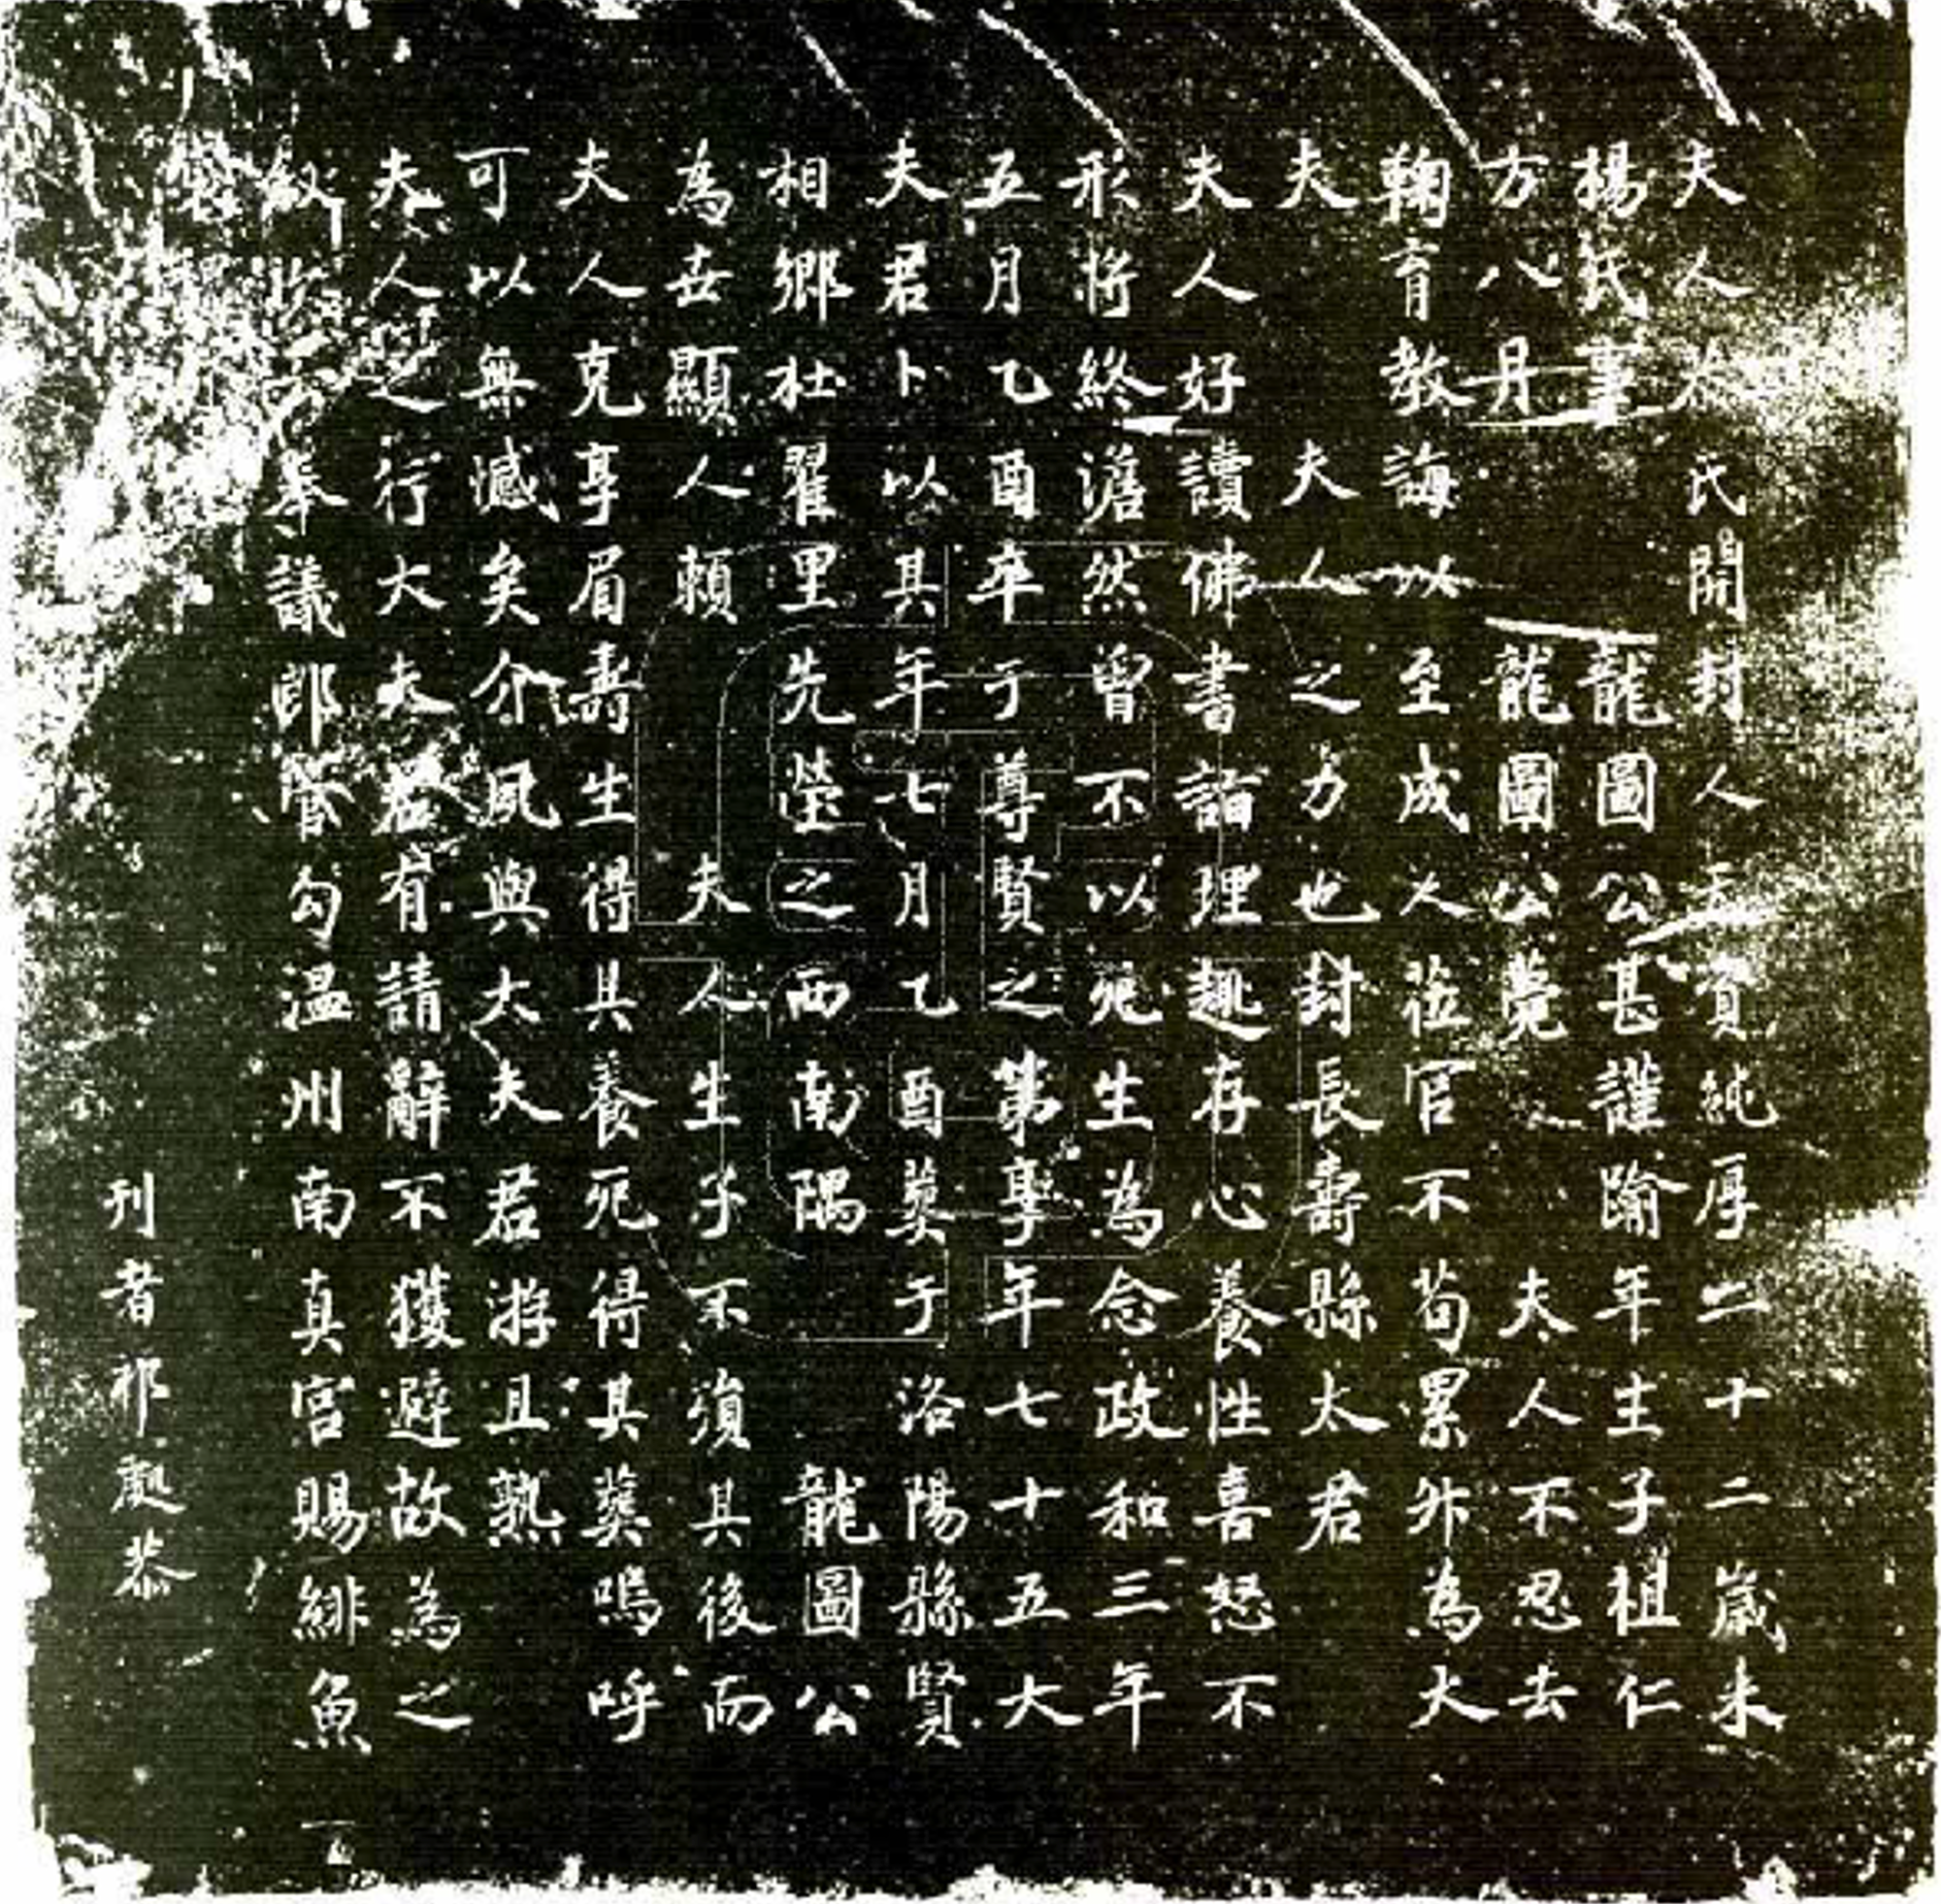 夫人 氏開封人 資純厚二十二歲未
楊氏事 龍圖公甚謹踰年生子祖仁
方八 龍圖公薨 夫人不忍去
鞠育教誨以至成人蒞官不苟累外為大
夫 夫人之力也封長壽縣太君
夫人好讀佛書詣理趣存心養性喜怒不
形將終澹然曾不以死生為念政和三年
五月乙酉卒于尊賢之第享年七十五大
夫君卜以其年七月乙酉葬于洛陽縣賢
相鄉杜翟里先塋之西南隅 龍圖公
為世顯人賴 夫人生子不須其後而
夫人克享眉壽生得其養死得其葬嗚呼
可以無憾矣介夙與大夫君游且熟
夫人之行大夫君有請辭不獲避故為之
敘 奉議郎管勾溫州南真宮賜緋魚
刊者祁處恭